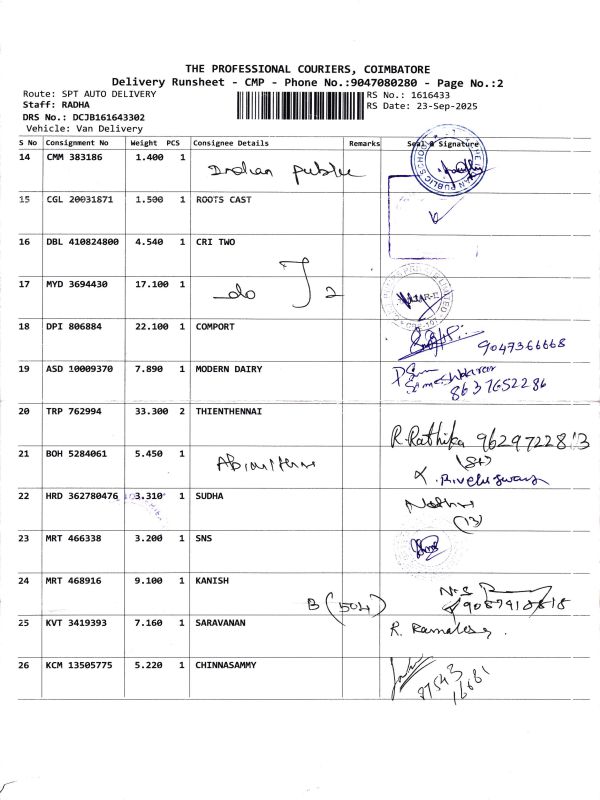 THE PROFESSIONAL COURIERS, COIMBATORE
Delivery Runsheet - CMP - Phone No.:9047080280 - Page No.:2
Route: SPT AUTO DELIVERY
RS No.: 1616433
Staff: RADHA
RS Date: 23-Sep-2025
DRS No.: DCJB161643302
Vehicle: Van Delivery
S No Consignment No Weight PCS Consignee Details Remarks Seal & Signature
14 CMM 383186 1.400 1 Indian public
15 CGL 20031871 1.500 1 ROOTS CAST
16 DBL 410824800 4.540 1 CRI TWO
17 MYD 3694430 17.100 1 do 2
18 DPI 806884 22.100 1 COMPORT 9047366668
19 ASD 10009370 7.890 1 MODERN DAIRY 8637652286
20 TRP 762994 33.300 2 THIENTHENNAI R. Rathika 9629722813
21 BOH 5284061 5.450 1
22 HRD 362780476 3.310 1 SUDHA (13)
23 MRT 466338 3.200 1 SNS
24 MRT 468916 9.100 1 KANISH
B (504)
25 KVT 3419393 7.160 1 SARAVANAN
26 KCM 13505775 5.220 1 CHINNASAMMY 87543
16661